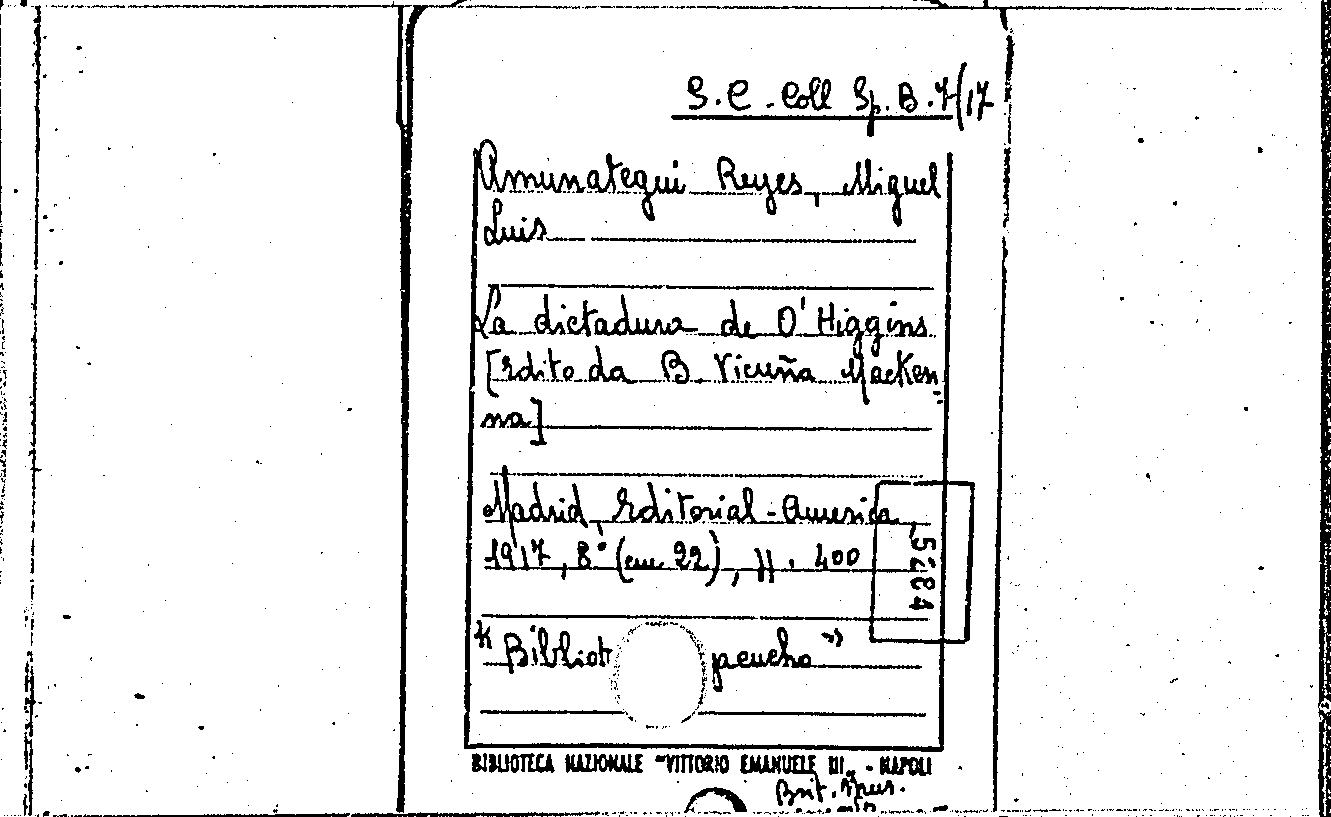 S.C. Coll Sp. B. 7/17
Amunategui Reyes, Miguel
Luis
La dictadura de O'Higgins
[Edito da B. Vicuña Macken-
na]
Madrid, Editorial-America,
1917, 8° (cm. 22), pp. 400
5284
"Bibliot pcucho"
BIBLIOTECA NAZIONALE "VITTORIO EMANUELE III" - NAPOLI
Brit.